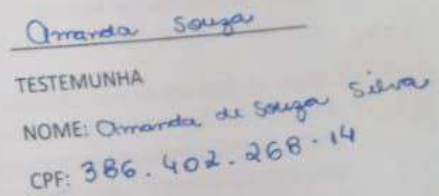 Amanda Souza
TESTEMUNHA
NOME: Amanda de Souza Silva
CPF: 386.402.268.14